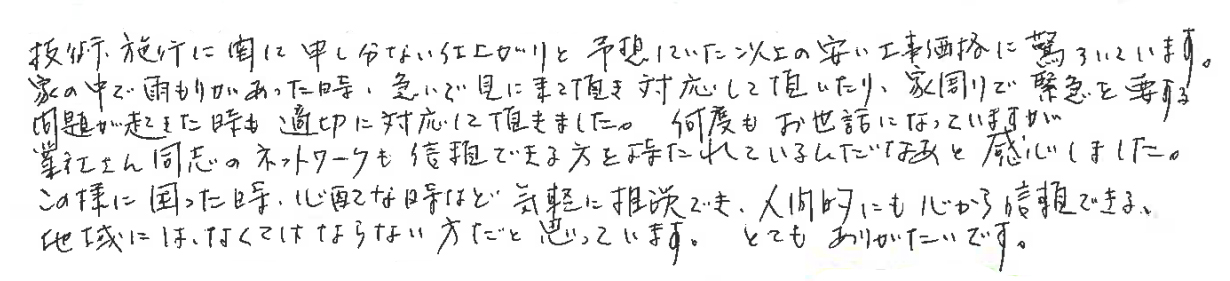 技術、施行に関して申し分ない仕上がりと予想していた以上の安い工事価格に驚ろいています。
家の中で雨もりがあった時、急いで見に来て頂き対応して頂いたり、家周りで緊急を要する
問題が起きた時も適切に対応して頂きました。 何度もお世話になっていますが
業社さん同志のネットワークも信頼できる方を持たれているんだなあと感心しました。
この様に困った時、心配な時など気軽に相談でき、人間的にも心から信頼できる、
地域には、なくてはならない方だと思っています。 とてもありがたいです。